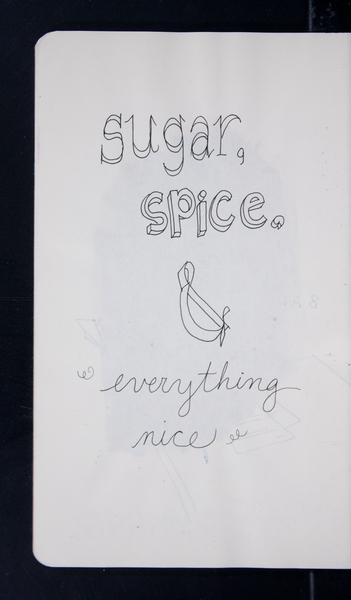 sugar,
spice,
&
everything
nice